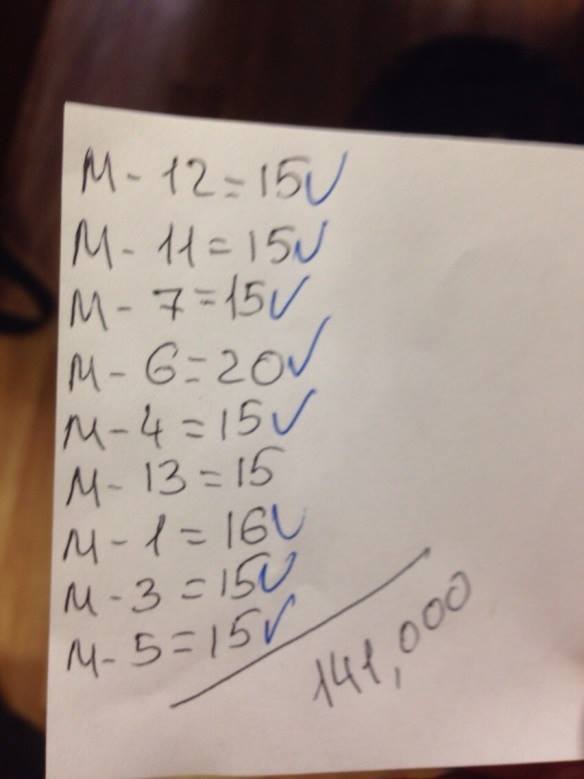 M - 12 = 15 ✓
M - 11 = 15 ✓
M - 7 = 15 ✓
M - 6 = 20 ✓
M - 4 = 15 ✓
M - 13 = 15
M - 1 = 16 ✓
M - 3 = 15 ✓
M - 5 = 15 ✓
141,000